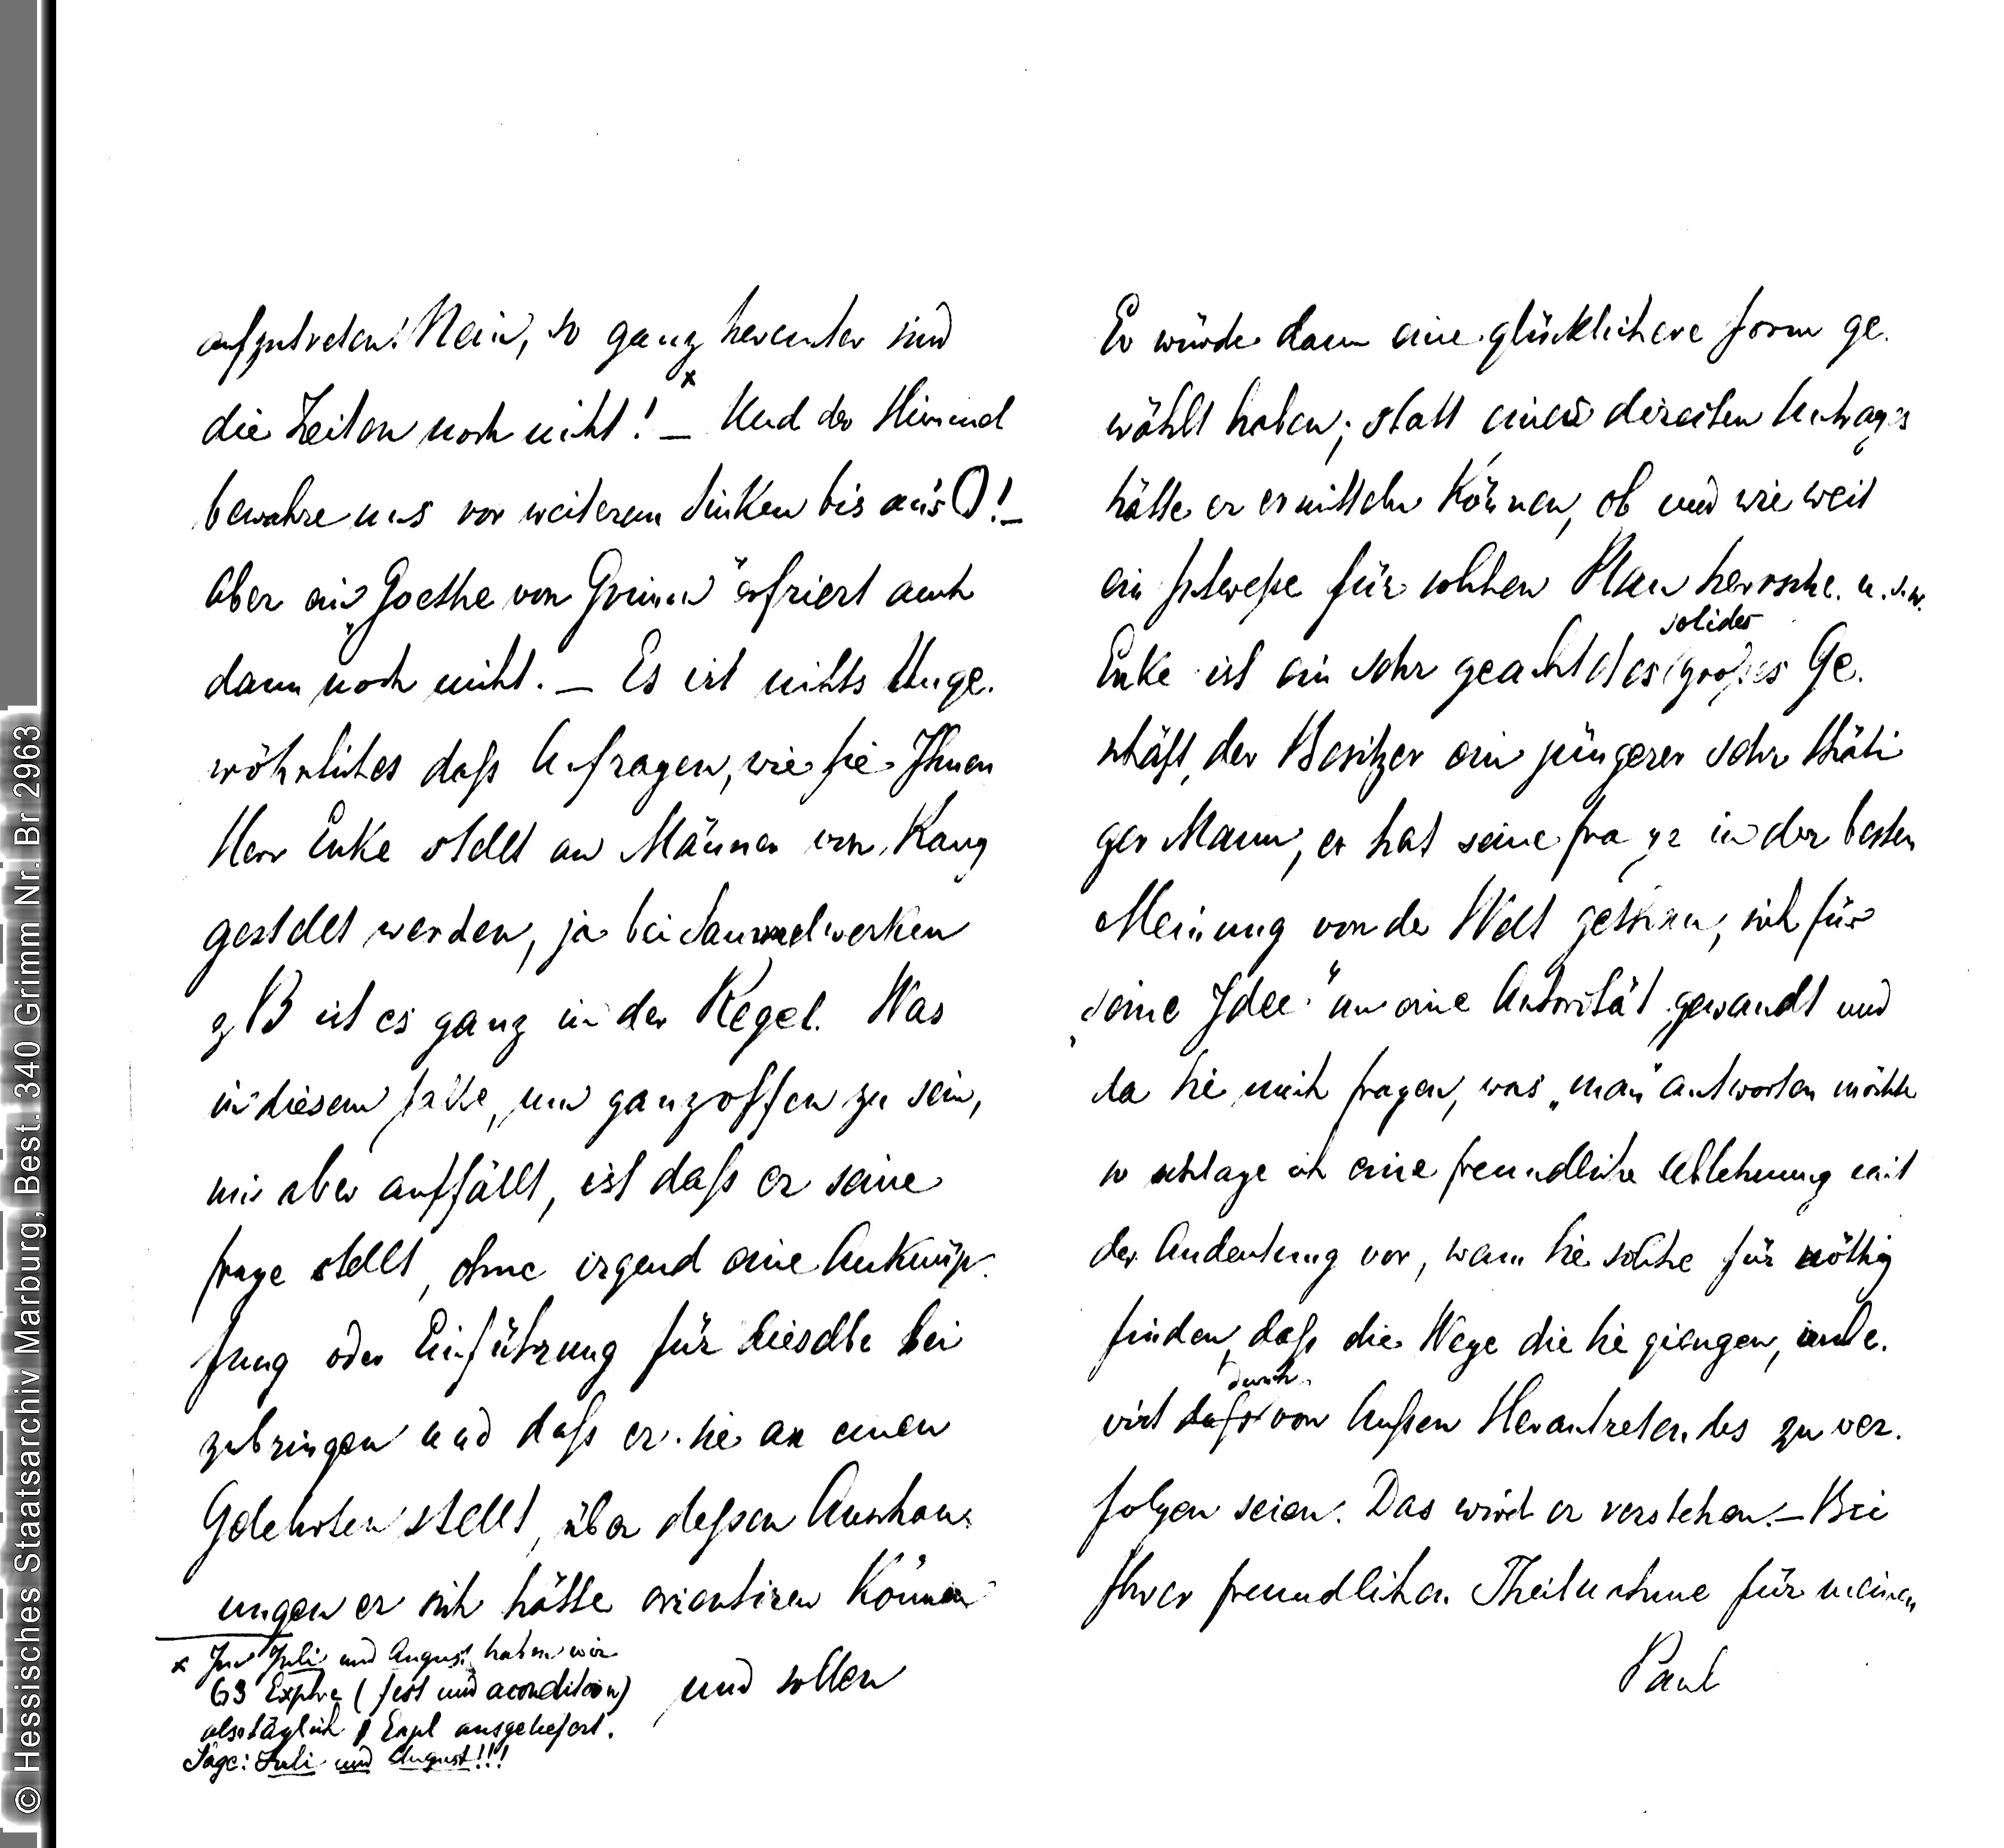 aufzutreten! Nein, so ganz herunter sind
die Zeiten noch nicht! x – Und der Himmel
bewahre uns vor weiterem Sinken bis auf's 0! –
Aber ein „Goethe von Grimm" erfriert auch
dann noch nicht. – Es ist nichts Unge-
wöhnliches daß Anfragen, wie sie Ihnen
Herr Enke stellt an Männer von Rang
gestellt werden, ja bei Sammelwerken
z B ist es ganz in der Regel. Was
in diesem Falle, um ganz offen zu sein,
mir aber auffällt, ist daß er seine
Frage stellt, ohne irgend eine Anknüp-
fung oder Einführung für dieselbe bei
zubringen und daß er sie an einen
Gelehrten stellt, über deßen Anschau-
ungen er sich hätte orientiren können
und sollen
x Im Juli und August haben wir
63 Explre (fest und acondition)
also täglich 1 Expl ausgeliefert.
Sage: Juli und August!!!
Er würde dann eine glücklichere Form ge-
wählt haben; statt eines direkten Antrages
hätte er ermitteln können, ob und wie weit
ein Intereße für solchen Plan herrsche. u. s. w.
solides
Enke ist ein sehr geachtetes großes Ge-
schäft, der Besitzer ein jüngerer sehr thäti
ger Mann, er hat seine Frage in der besten
Meinung von der Welt gethan, sich für
„seine Idee" an eine Autorität gewandt und
da Sie mich fragen, was „man" antworten möchte
so schlage ich eine freundliche Ablehnung mit
der Andeutung vor, wenn Sie solche für nöthig
finden, daß die Wege die Sie giengen, unbe-
durch
irrt daß von Außen Herantretendes zu ver-
folgen seien. Das wird er verstehen. – Bei
Ihrer freundlichen Theilnahme für meinen
Paul
© Hessisches Staatsarchiv Marburg, Best. 340 Grimm Nr. Br 2963